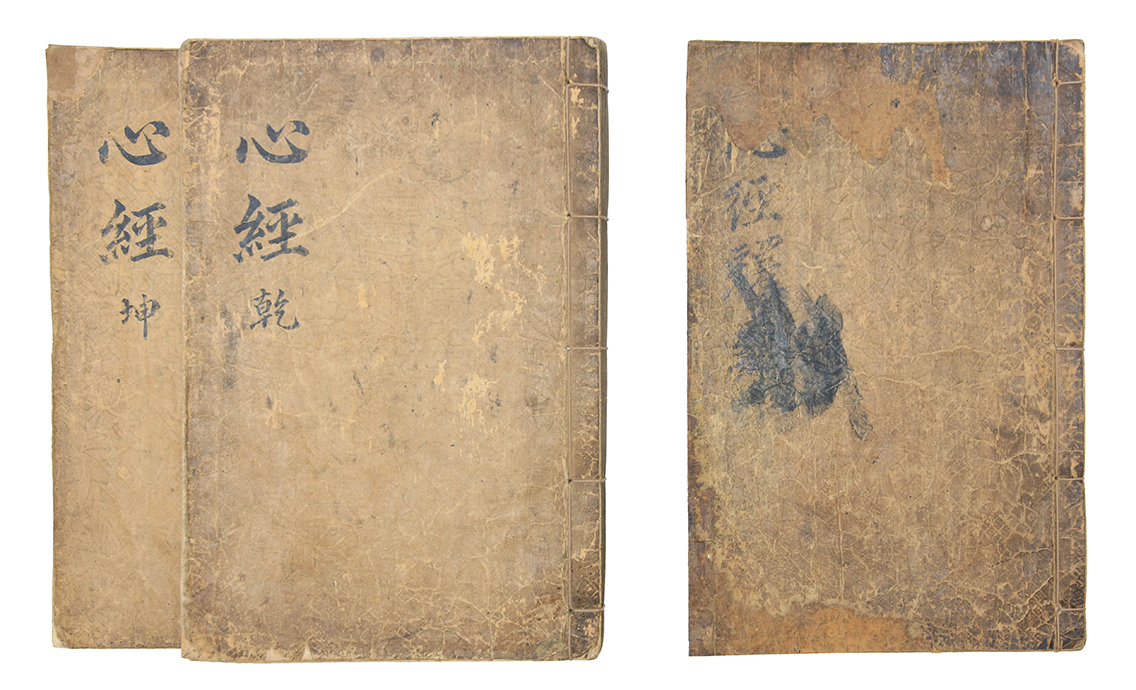 心經乾
心經坤
心經